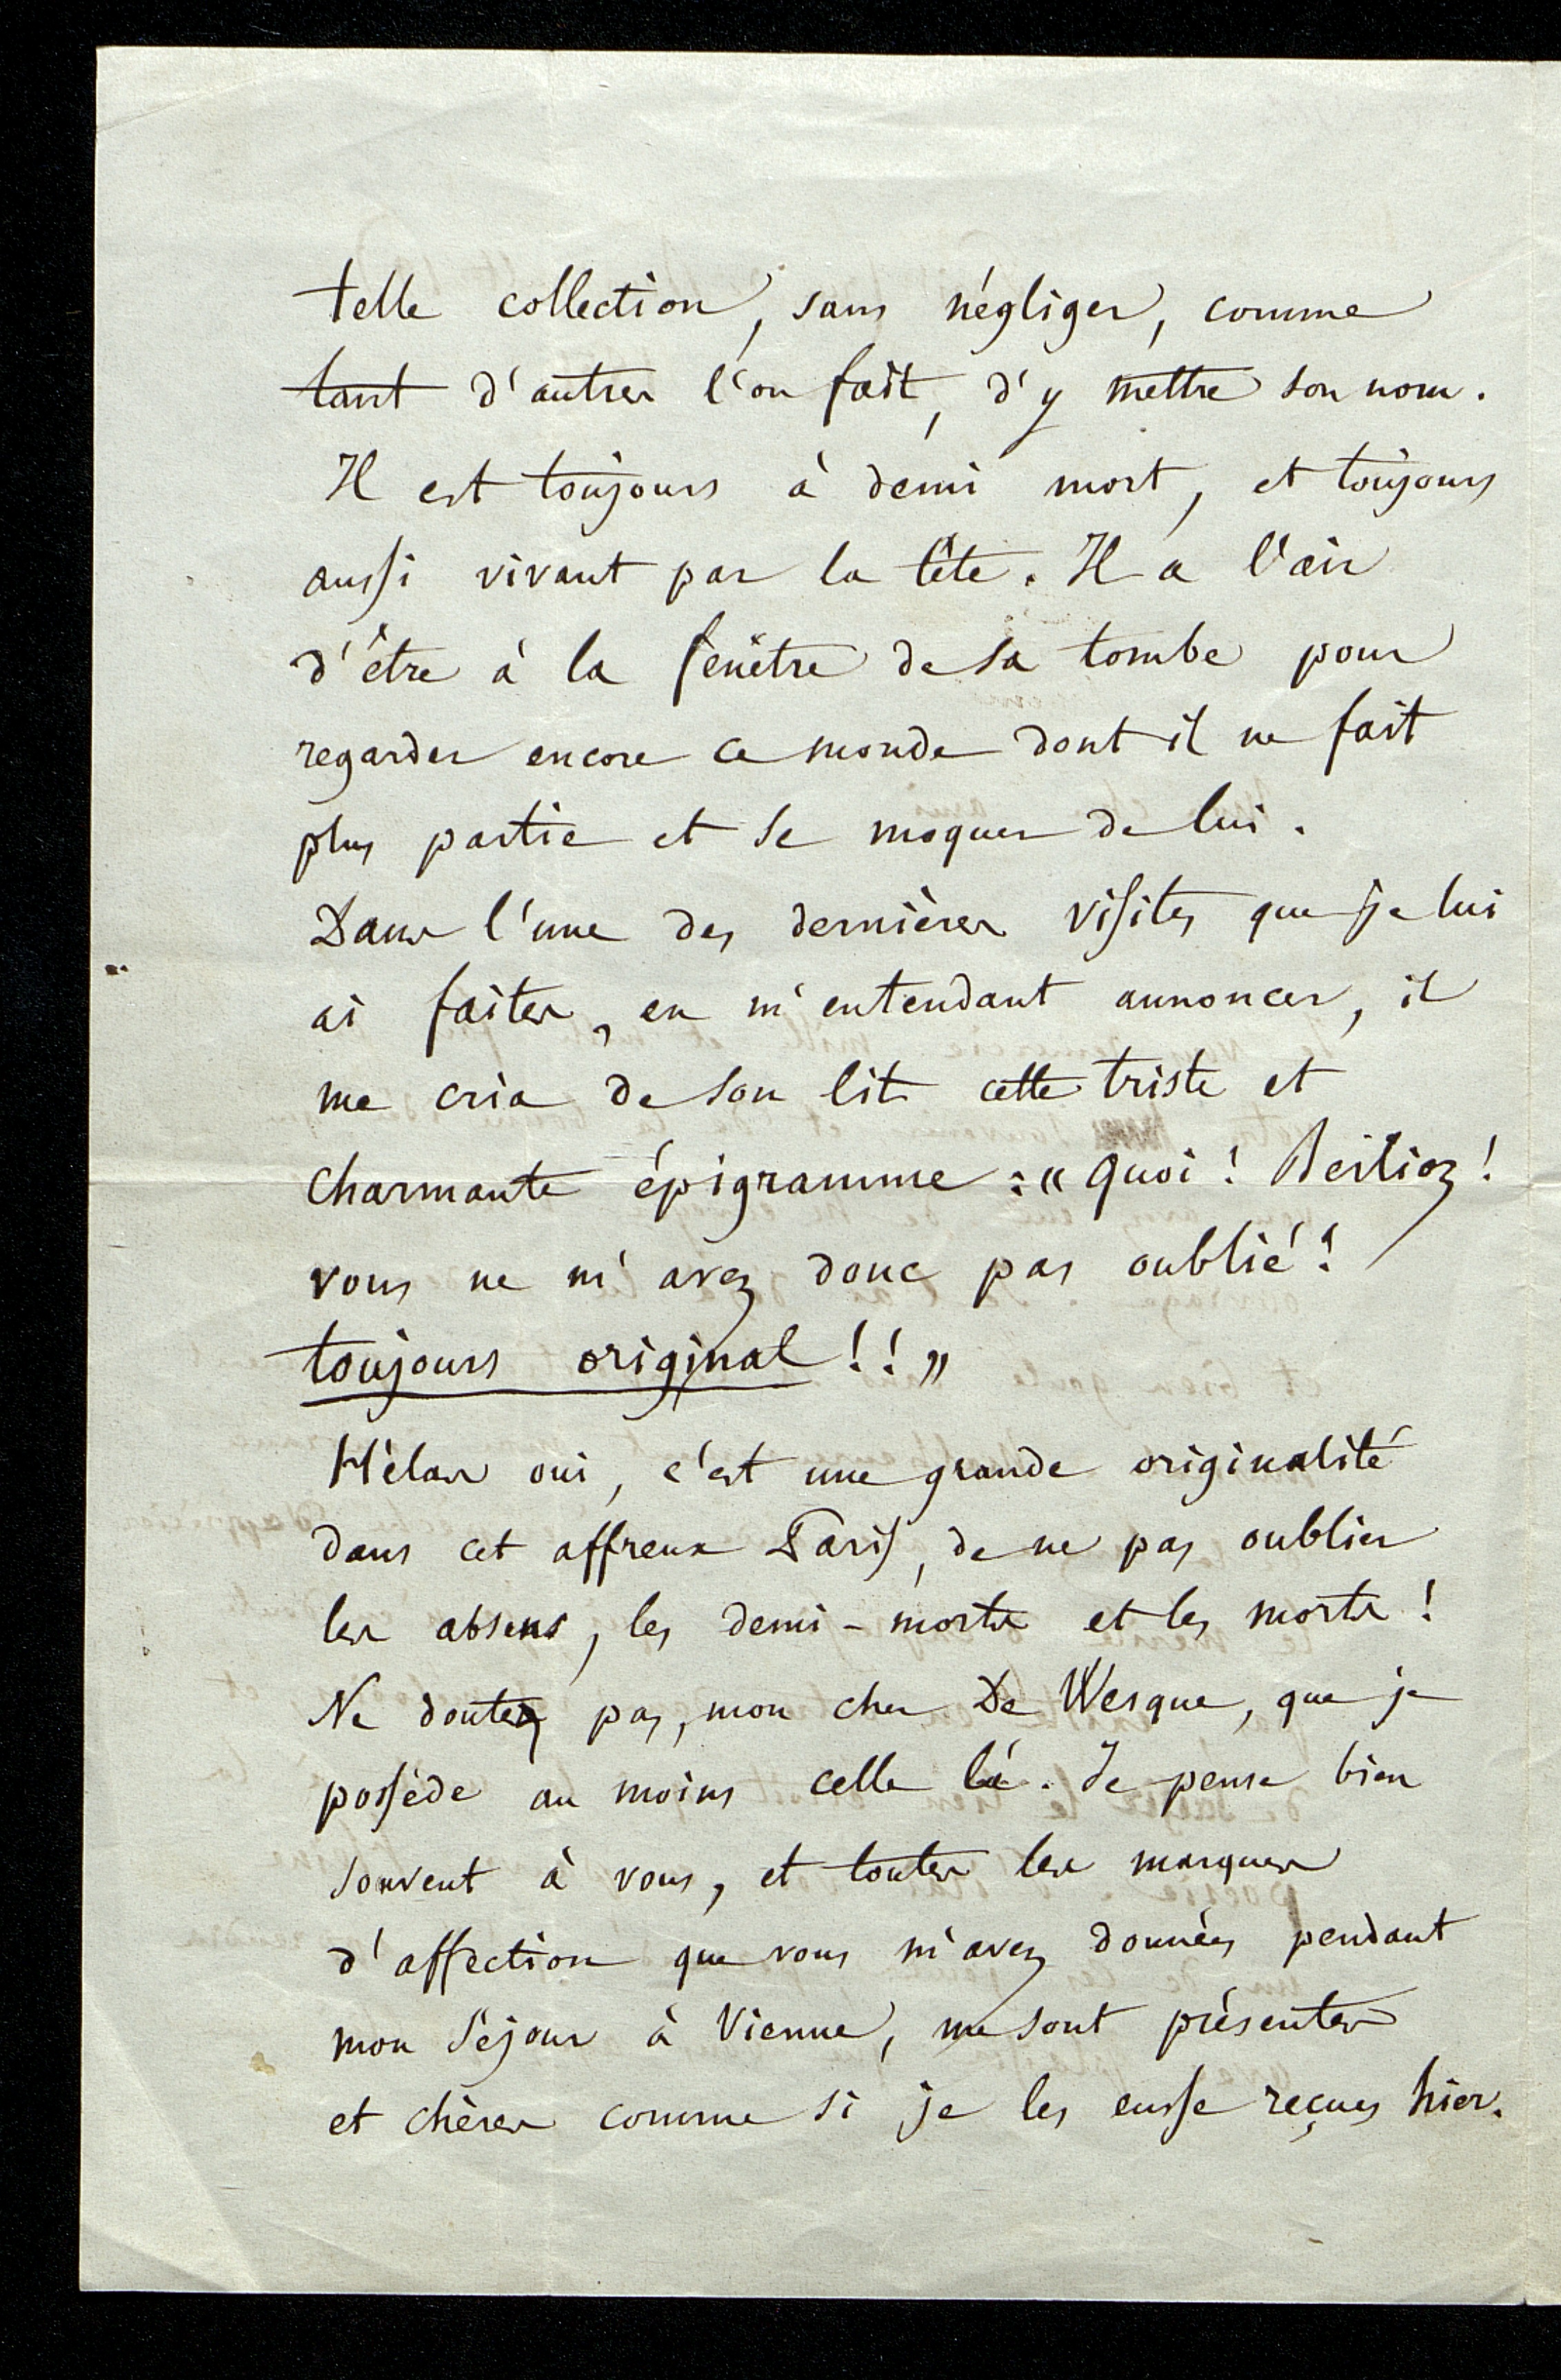 telle collection, sans négliger, comme
tant d'autres l'on fait, d'y mettre son nom.
Il est toujours à demi mort, et toujours
aussi vivant par la tête. Il a l'air
d'être à la fenêtre de sa tombe pour
regarder encore ce monde dont il ne fait
plus partie et se moquer de lui.
Dans l'une des dernières visites que je lui
ai faites, en m'entendant annoncer, il
me cria de son lit cette triste et
charmante épigramme : « Quoi ! Berlioz !
vous ne m'avez donc pas oublié !
toujours original !! »
Hélas oui, c'est une grande originalité
dans cet affreux Paris, de ne pas oublier
les absens, les demi-morts et les morts !
Ne doutez pas, mon cher De Wesque, que je
possède au moins celle là. Je pense bien
souvent à vous, et toutes les marques
d'affection que vous m'avez données pendant
mon séjour à Vienne, me sont présentes
et chères comme si je les eusse reçues hier.